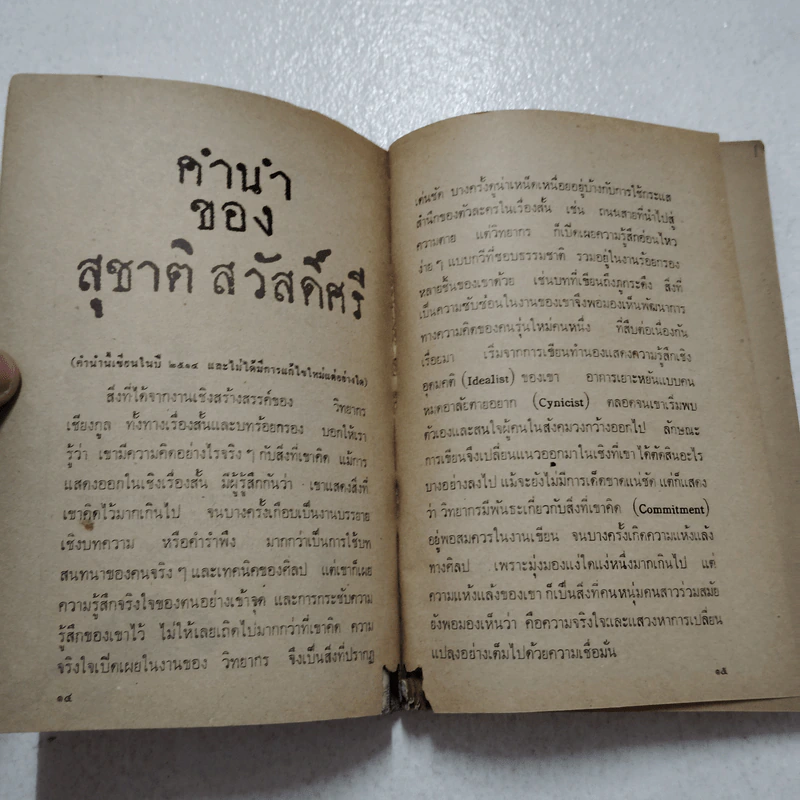 คำนำ
ของ
สุชาติ สวัสดิ์ศรี
(คำนำนี้เขียนในปี ๒๕๑๔ และไม่ได้มีการแก้ไขใหม่แต่อย่างใด)
สิ่งที่ได้จากงานเชิงสร้างสรรค์ของ วิทยากร
เชียงกูล ทั้งทางเรื่องสั้นและบทร้อยกรอง บอกให้เรา
รู้ว่า เขามีความคิดอย่างไรจริง ๆ กับสิ่งที่เขาคิด แม้การ
แสดงออกในเชิงเรื่องสั้น มีผู้รู้สึกกันว่า เขาแสดงสิ่งที่
เขาคิดไว้มากเกินไป จนบางครั้งเกือบเป็นงานบรรยาย
เชิงบทความ หรือคำรำพึง มากกว่าเป็นการใช้บท
สนทนาของคนจริง ๆ และเทคนิคของศิลป แต่เขาก็เผย
ความรู้สึกจริงใจของตนอย่างเข้าจุด และการกระชับความ
รู้สึกของเขาไว้ ไม่ให้เลยเถิดไปมากกว่าที่เขาคิด ความ
จริงใจเปิดเผยในงานของ วิทยากร จึงเป็นสิ่งที่ปรากฏ
๑๔
เด่นชัด บางครั้งดูน่าเหน็ดเหนื่อยอยู่บ้างกับการใช้กระแส
สำนึกของตัวละครในเรื่องสั้น เช่น ถนนสายที่นำไปสู่
ความตาย แต่วิทยากร ก็เปิดเผยความรู้สึกอ่อนไหว
ง่าย ๆ แบบกวีที่ชอบธรรมชาติ รวมอยู่ในงานร้อยกรอง
หลายชิ้นของเขาด้วย เช่นบทที่เขียนถึงภูกระดึง สิ่งที่
เป็นความซับซ้อนในงานของเขาจึงพอมองเห็นพัฒนาการ
ทางความคิดของคนรุ่นใหม่คนหนึ่ง ที่สืบต่อเนื่องกัน
เรื่อยมา เริ่มจากการเขียนทำนองแสดงความรู้สึกเชิง
อุดมคติ (Idealist) ของเขา อาคารเยาะหยันแบบคน
หมดอาลัยตายอยาก (Cynicist) ตลอดจนเขาเริ่มพบ
ตัวเองและสนใจผู้คนในสังคมวงกว้างออกไป ลักษณะ
การเขียนจึงเปลี่ยนแนวออกมาในเชิงที่เขา ได้ตัดสินอะไร
บางอย่างลงไป แม้จะยังไม่มีการเด็ดขาดแน่ชัด แต่ก็แสดง
ว่า วิทยากรมีพันธะเกี่ยวกับสิ่งที่เขาคิด (Commitment)
อยู่พอสมควรในงานเขียน จนบางครั้งเกิดความแห้งแล้ง
ทางศิลป เพราะมุ่งมองแง่ใดแง่หนึ่งมากเกินไป แต่
ความแห้งแล้งของเขา ก็เป็นสิ่งที่คนหนุ่มคนสาวร่วมสมัย
ยังพอมองเห็นว่า คือความจริงใจและแสวงหาการเปลี่ยน
แปลงอย่างเต็มไปด้วยความเชื่อมั่น
๑๕